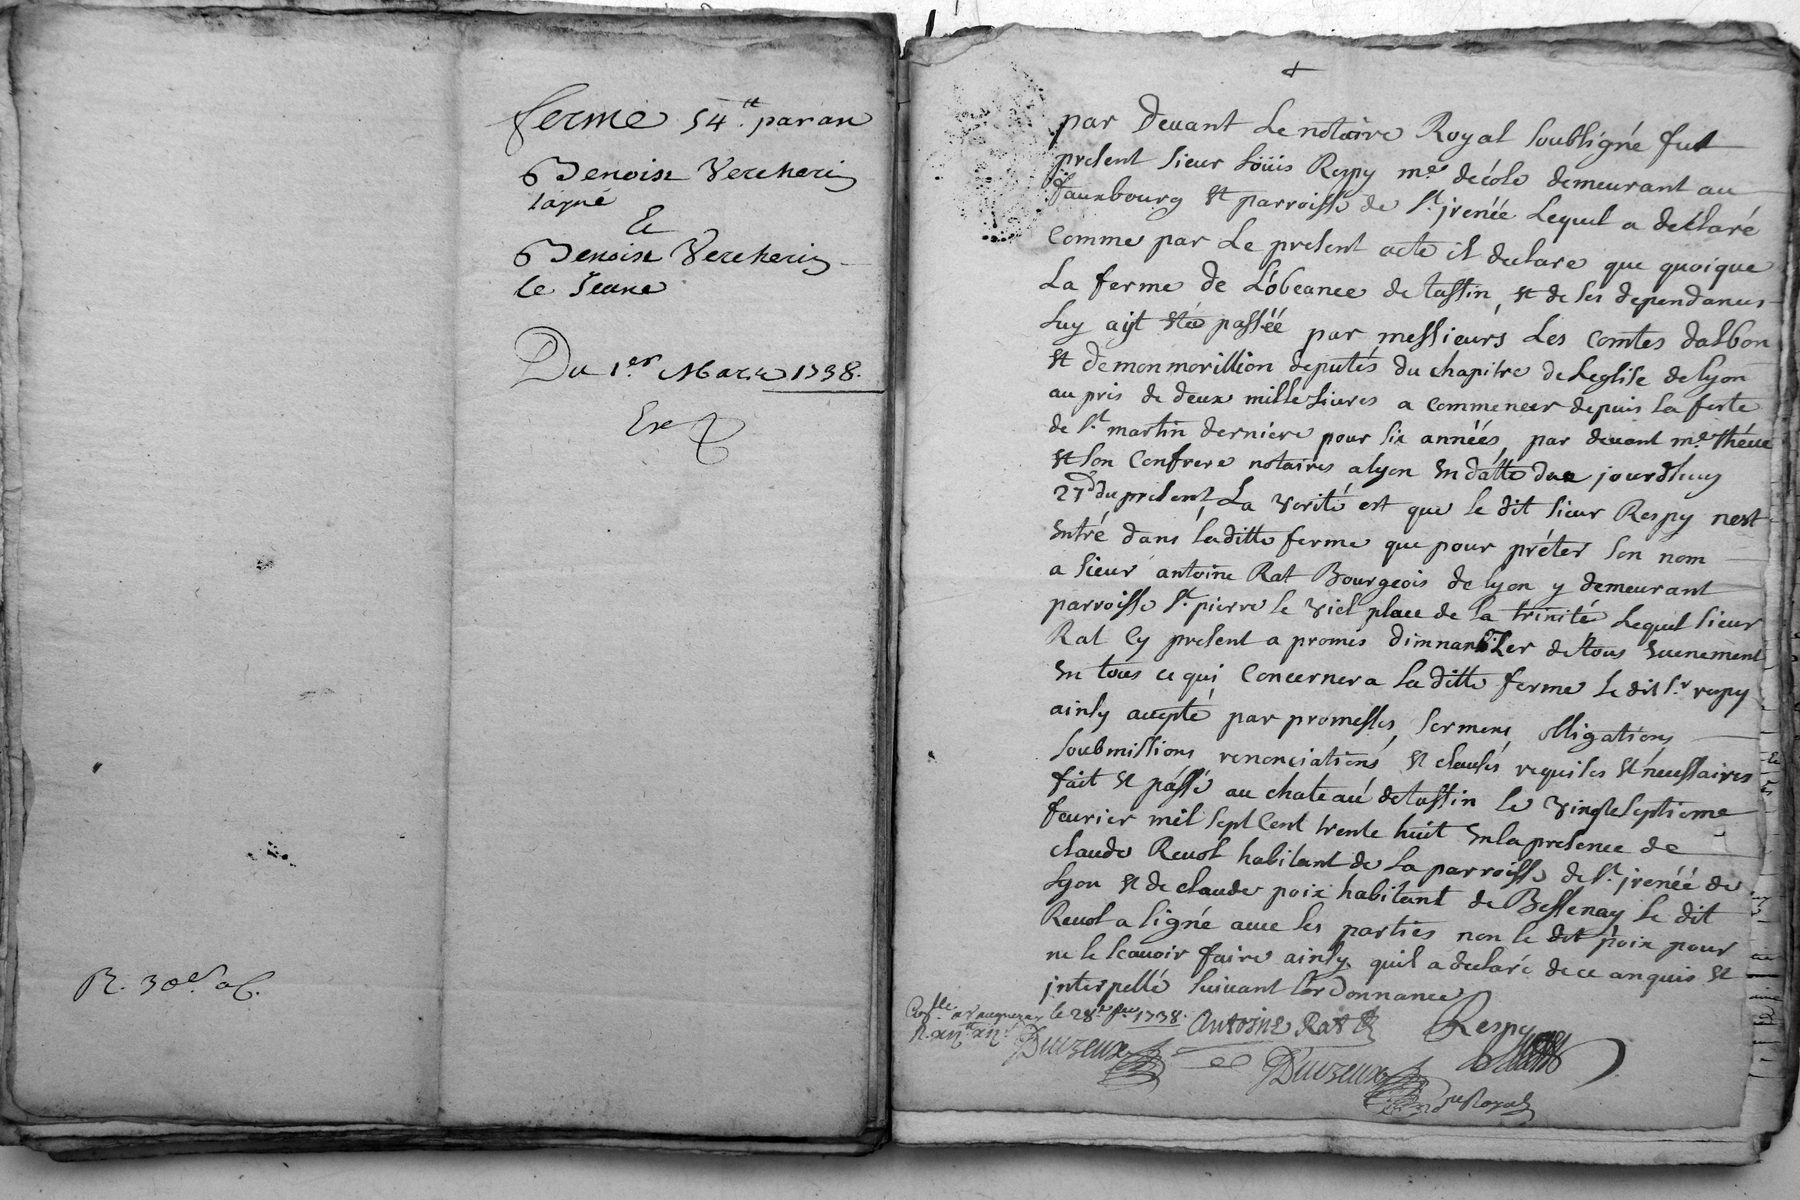 ferme 54 ₶ par an
Benoist Vercherin
layné
Et
Benoist Vercherin
le Jeune
Du 1.er Mars 1738.
Ex
R. 30
par Devant Le notaire Royal soubsigné fut
present sieur Loüis Respy me decole demeurant au
fauxbourg et parroisse de St jrenée Lequel a declaré
comme par Le present acte il declare que quoique
La ferme de Lobeance de tassin, et de ses dependances
Luy ayt eté passéé par messieurs Les comtes dalbon
et de monmorillion deputés du chapitre de Leglise de lyon
au pris de deux mille Livres a commencer depuis La feste
de St martin derniere pour six annéés, par devant me
et son Confrere notaires a lyon en datte jourdhuy
27e du present, La verité est que le dit sieur Respy nest
entré dans laditte ferme que pour préter son nom
a sieur antoine Rat Bourgeois de lyon y demeurant
parroisse St pierre le viel place de la trinité Lequel sieur
Rat Cy present a promis de tous evenement
en tous ce qui Concernera La ditte ferme Le dit Sr respy
ainsy accepté par promesses, sermens, obligations
soubmissions, renonciations et clauses requises et necessaires
fait et passé au chateau de tassin le vingtseptieme
fevrier mil sept Cent trente huit en la presence de
claude Revol habitant de La parroisse de St jrenéé de
Lyon et de claude poix habitant de Bessenay Le dit
Revol a signé avec les parties non le dit poix pour
ne le scavoir faire ainsy quil a declaré de ce anquis et
interpellé suivant Lordonnance
Antoine Rat Respy
Conlle a Vaugneray le 28e fev 1738.
Duizeux Duizeux
no Royal